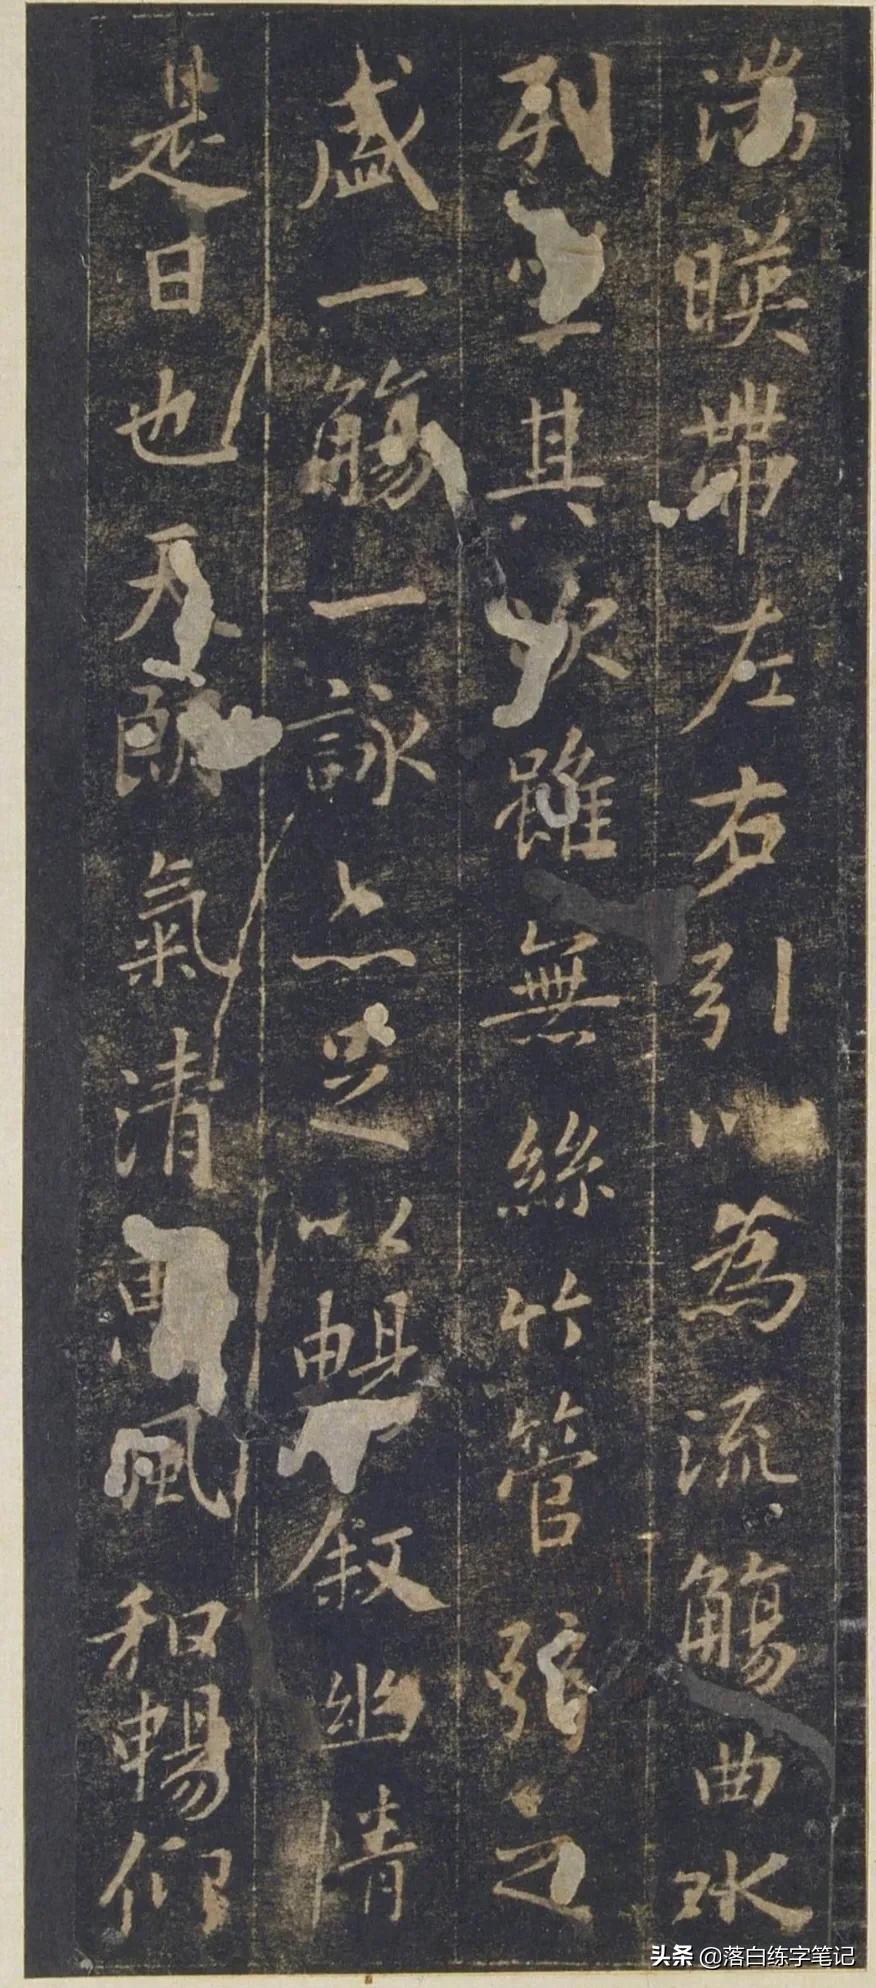 湍暎帶左右引以為流觴曲水
列坐其次雖無絲竹管弦之
盛一觴一詠亦足以暢敘幽情
是日也天朗氣清惠風和暢仰
头条 @落白练字笔记